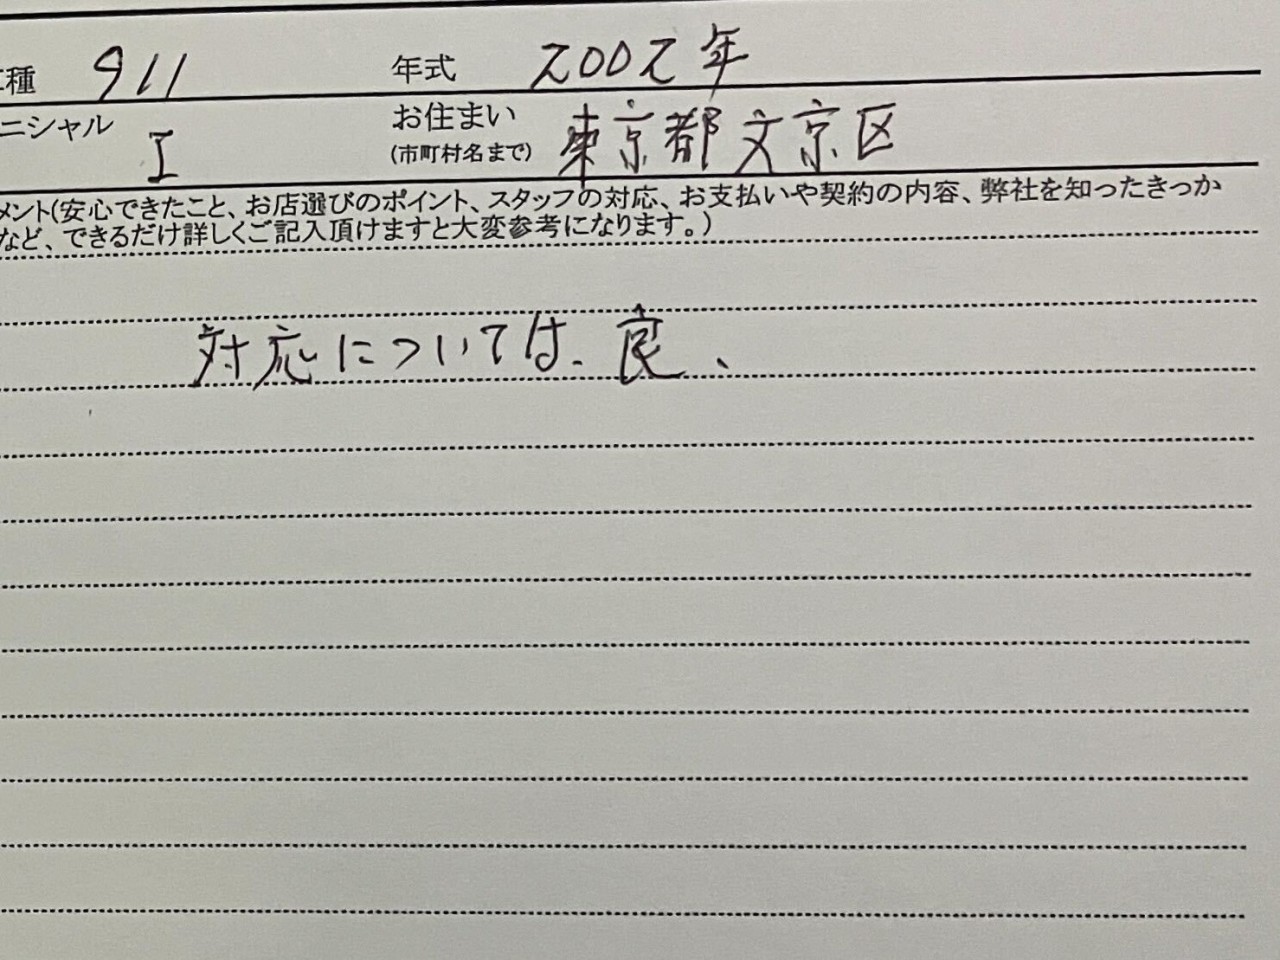 種 911 年式 2002年
ニシャル I お住まい
(市町村名まで) 東京都文京区
メント(安心できたこと、お店選びのポイント、スタッフの対応、お支払いや契約の内容、弊社を知ったきっか
など、できるだけ詳しくご記入頂けますと大変参考になります。)
対応については、良、